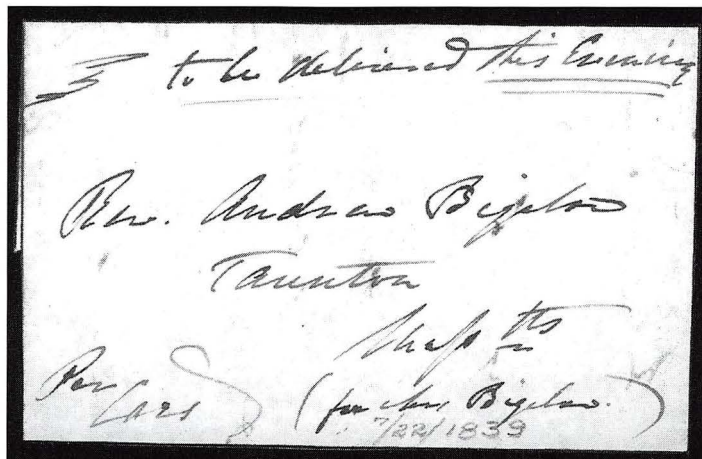 to be delivered this Evening
Rev. Andrew Bigelow
Taunton
Mass tts
Per
Cars
(for Mrs Bigelow.)
7/22/1839